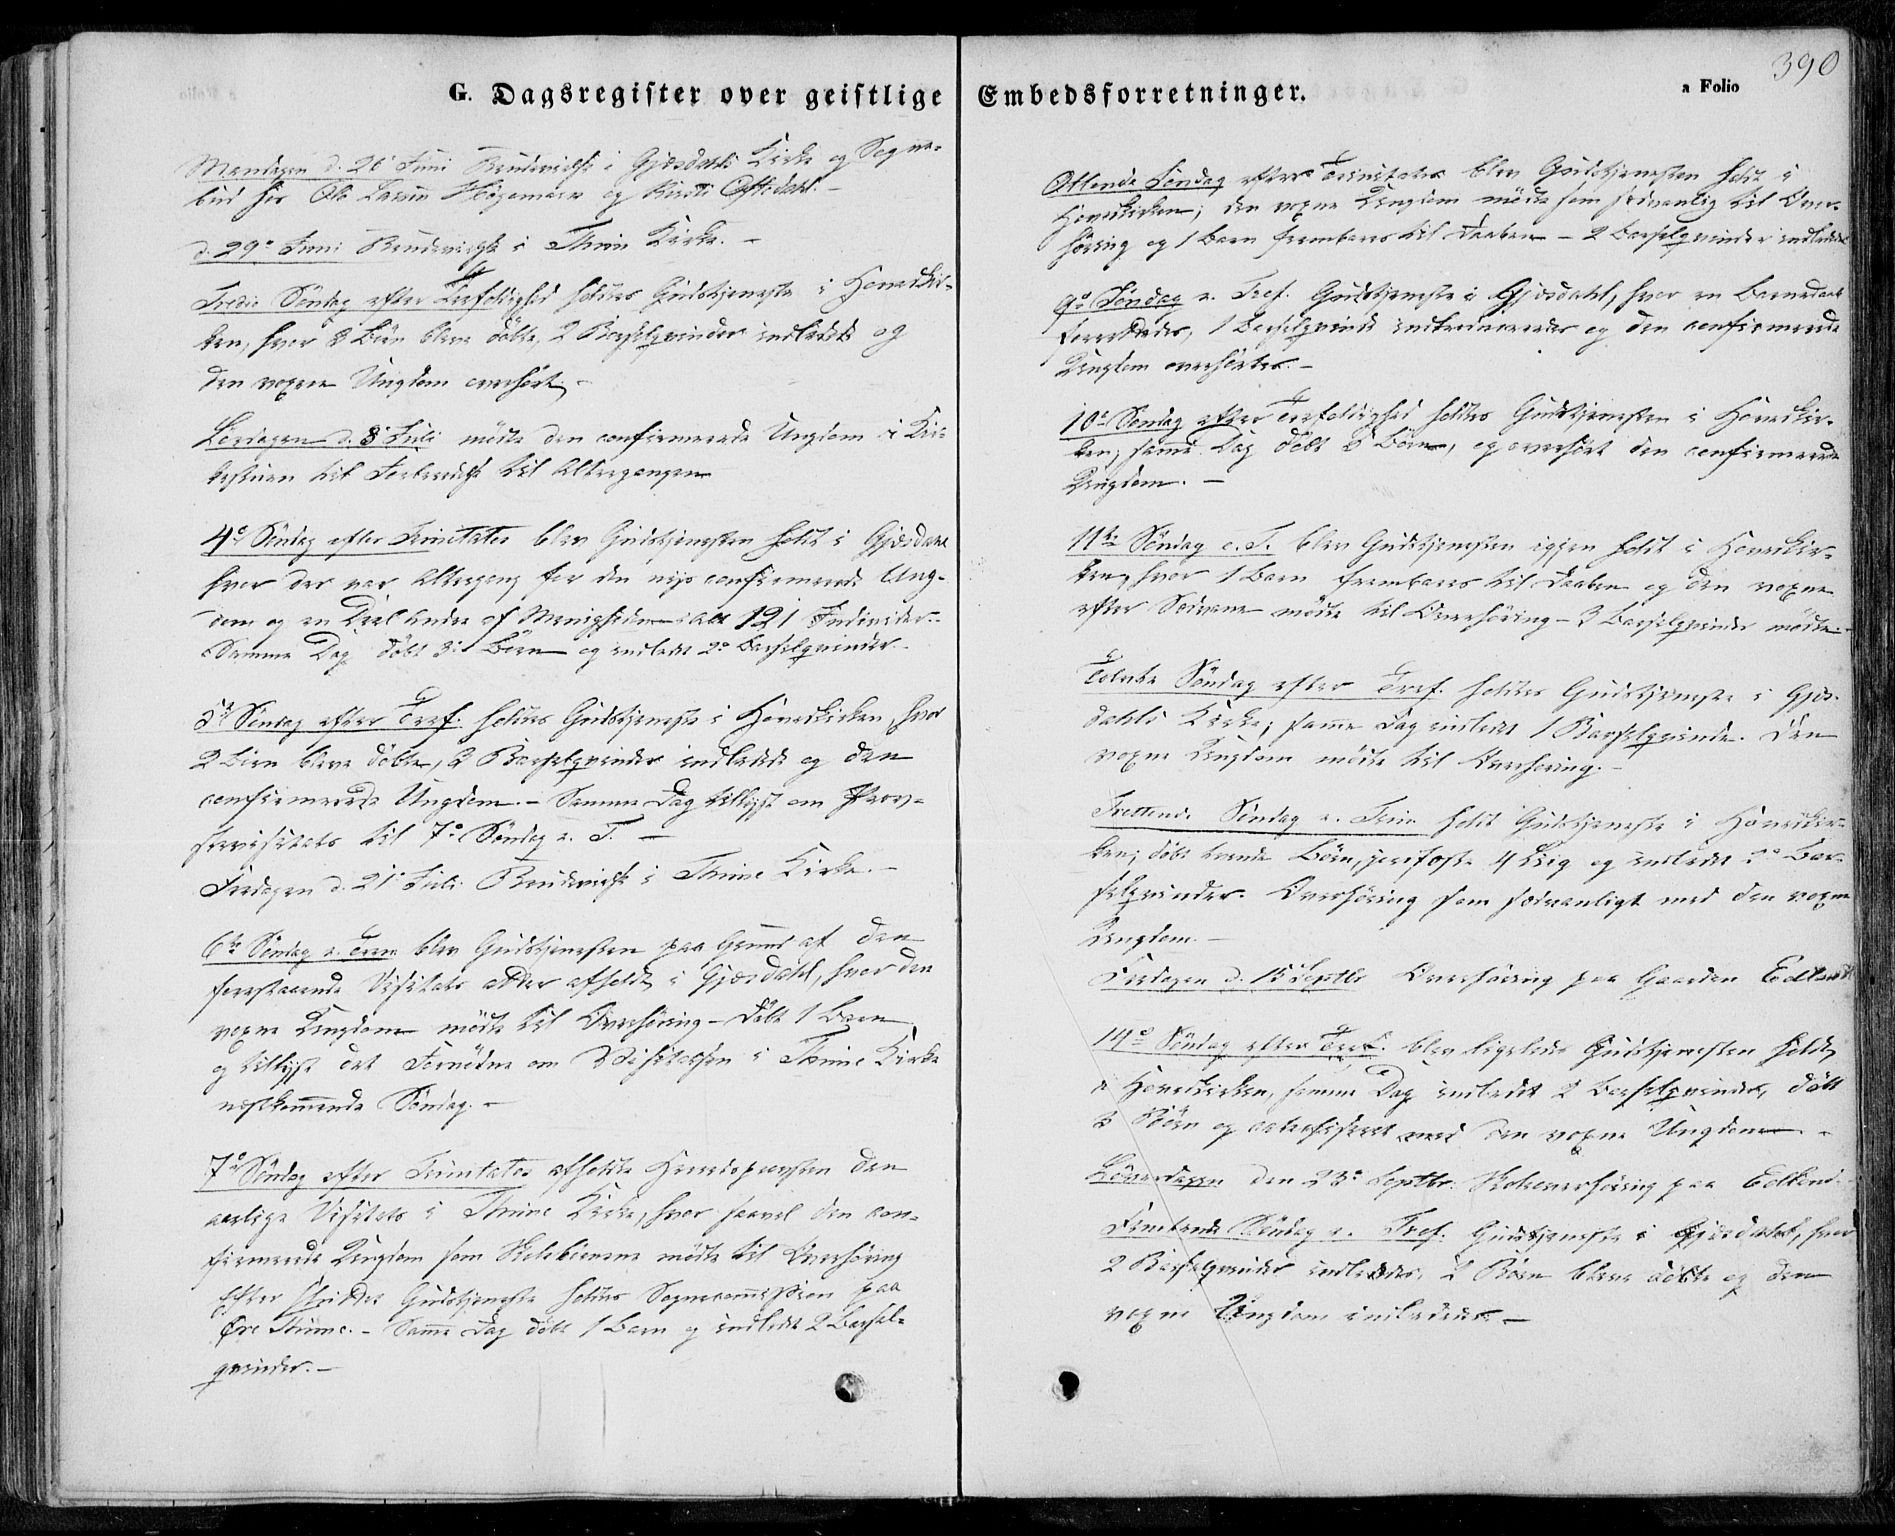 390
G. Dagsregister over geistlige Embedsforretninger.
a Folio
Mandagen d. 26 Juni Brudevielse i Gjæsdahls Kirke og Sogne-
bud hos Ole Larsen og Kirsti Oftedahl. –
d. 29de Juni Brudevielse i Thime Kirke. –
Tredie Söndag efter Trefoldighed holdtes Gudstjeneste i Hovedkir-
ken, hvor 8 Börn bleve döbte, 2 Barselqvinder indledede og
den voxne Ungdom overhört. –
Löverdagen d. 8 Juli mödte den confirmerede Ungdom i Kir-
kestuen til Forberedelse til Altergangen
4de Söndag efter Trinitatis blev Gudstjenesten holdt i Gjæsdahl
hvor der var Altergang for den nys confirmerede Ung-
dom og en Deel Andre af Menigheden i alt 121 Individer. –
Samme Dag döbt 3 Börn og indledet 2 Barselqvinder. –
5te Söndag efter Tref. holdtes Gudstjeneste i Hovedkirken, hvor
2 Börn bleve döbte, 2 Barselqvinder indledede og den
confirmerede Ungdom. – Samme Dag tillyst om Prov-
stevisitats til 7de Söndag e. T. –
Fredagen d. 21 Juli Brudevielse i Thime Kirke. –
6te Söndag e. Trin blev Gudstjenesten paa Grund af den
forestaaende Visitats atter afholdt i Gjæsdahl, hvor den
voxne Ungdom mödte til Overhöring – Döbt 1 Barn
og tillyst det Fornödne om Visitatsen i Thime Kirke
næstkommende Söndag. –
7de Söndag efter Trinitatis afholdte Herredsprovsten den
aarlige Visitats i Thime Kirke, hvor saavel den con-
firmerede Ungdom som Skolebörnene mödte til Overhöring
Efter Gudstjeneste holdtes Sognecommission paa
Öre Thime. – Samme Dag döbt 1 Barn og indledet 2 Barsel-
qvinder. –
Ottende Söndag efter Trinitatis blev Gudstjenesten holdt i
Hovedkirken; den voxne Ungdom mödte som sædvanlig til Over-
höring og 1 Barn frembares til Daaben – 2 Barselqvinder indledede
9de Söndag e. Tref. Gudstjeneste i Gjæsdahl, hvor en Barnedaab
forrettedes, 1 Barselqvinde introduceredes og den confirmerede
Ungdom overhörtes. –
10de Söndag efter Trefoldighed holdtes Gudstjenesten i Hovedkir-
ken, samme Dag döbt 3 Börn, og overhört den confirmerede
Ungdom. –
11te Söndag e. T. blev Gudstjenesten igjen holdt i Hovedkir-
ken, hvor 1 Barn frembares til Daaben og den voxne
efter Sædvane mödte til Overhöring – 3 Barselqvinder mödte. –
Tolvte Söndag efter Tref. holdtes Gudstjeneste i Gjæs-
dahls Kirke; samme Dag indledet 1 Barselqvinde. Den
voxne Ungdom mödte til Overhöring. –
Trettende Söndag e. Trin holdt Gudstjeneste i Hovedkir-
ken; döbt trende Börn, jordfæste 4 Liig og indledet Bar-
selqvinder. Overhöring som sædvanligt med den voxne
Ungdom. –
Fredagen d. 15 Septbr Overhöring paa Gaarden Edland
14de Söndag efter Tref. blev ligeledes Gudstjenesten holdt
i Hovedkirken, samme Dag indledet 2 Barselqvinder, döbt
3 Börn og catechiseret med den voxne Ungdom. –
Löverdagen den 23de Septbr. Skoleoverhöring paa Edland
Femtende Söndag e. Tref. Gudstjeneste i Gjæsdahl, hvor
2 Barselqvinder indlededes, 2 Börn bleve döbte og den
voxne Ungdom –